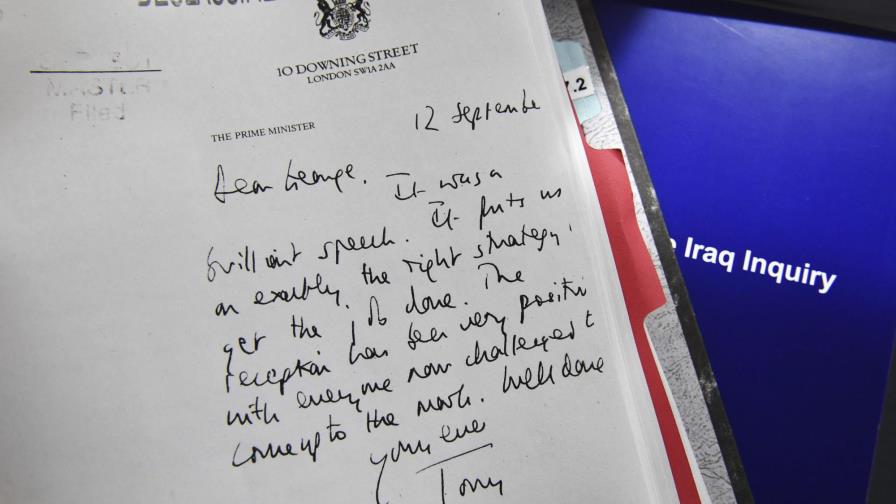 10 DOWNING STREET
LONDON SW1A 2AA
MASTER
Filed
7.2
THE PRIME MINISTER
12 Septembe
Dear George. It was a
brilliant speech. It puts us
on exactly the right strategy
get the job done. The
reception has been very positi
with everyone now challenged t
come up to the mark. Well done
Yours ever
Tony
e Iraq Inquiry